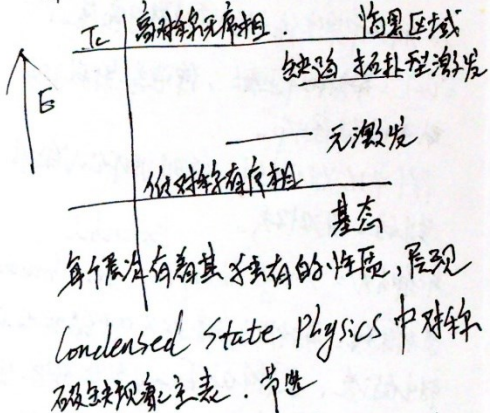 Tc 高对称无序相. 临界区域
缺陷 拓扑型激发
E
元激发
低对称有序相
基态
每个层次有着其独有的性质,展现
Condensed State Physics 中对称
破缺现象主表.节选